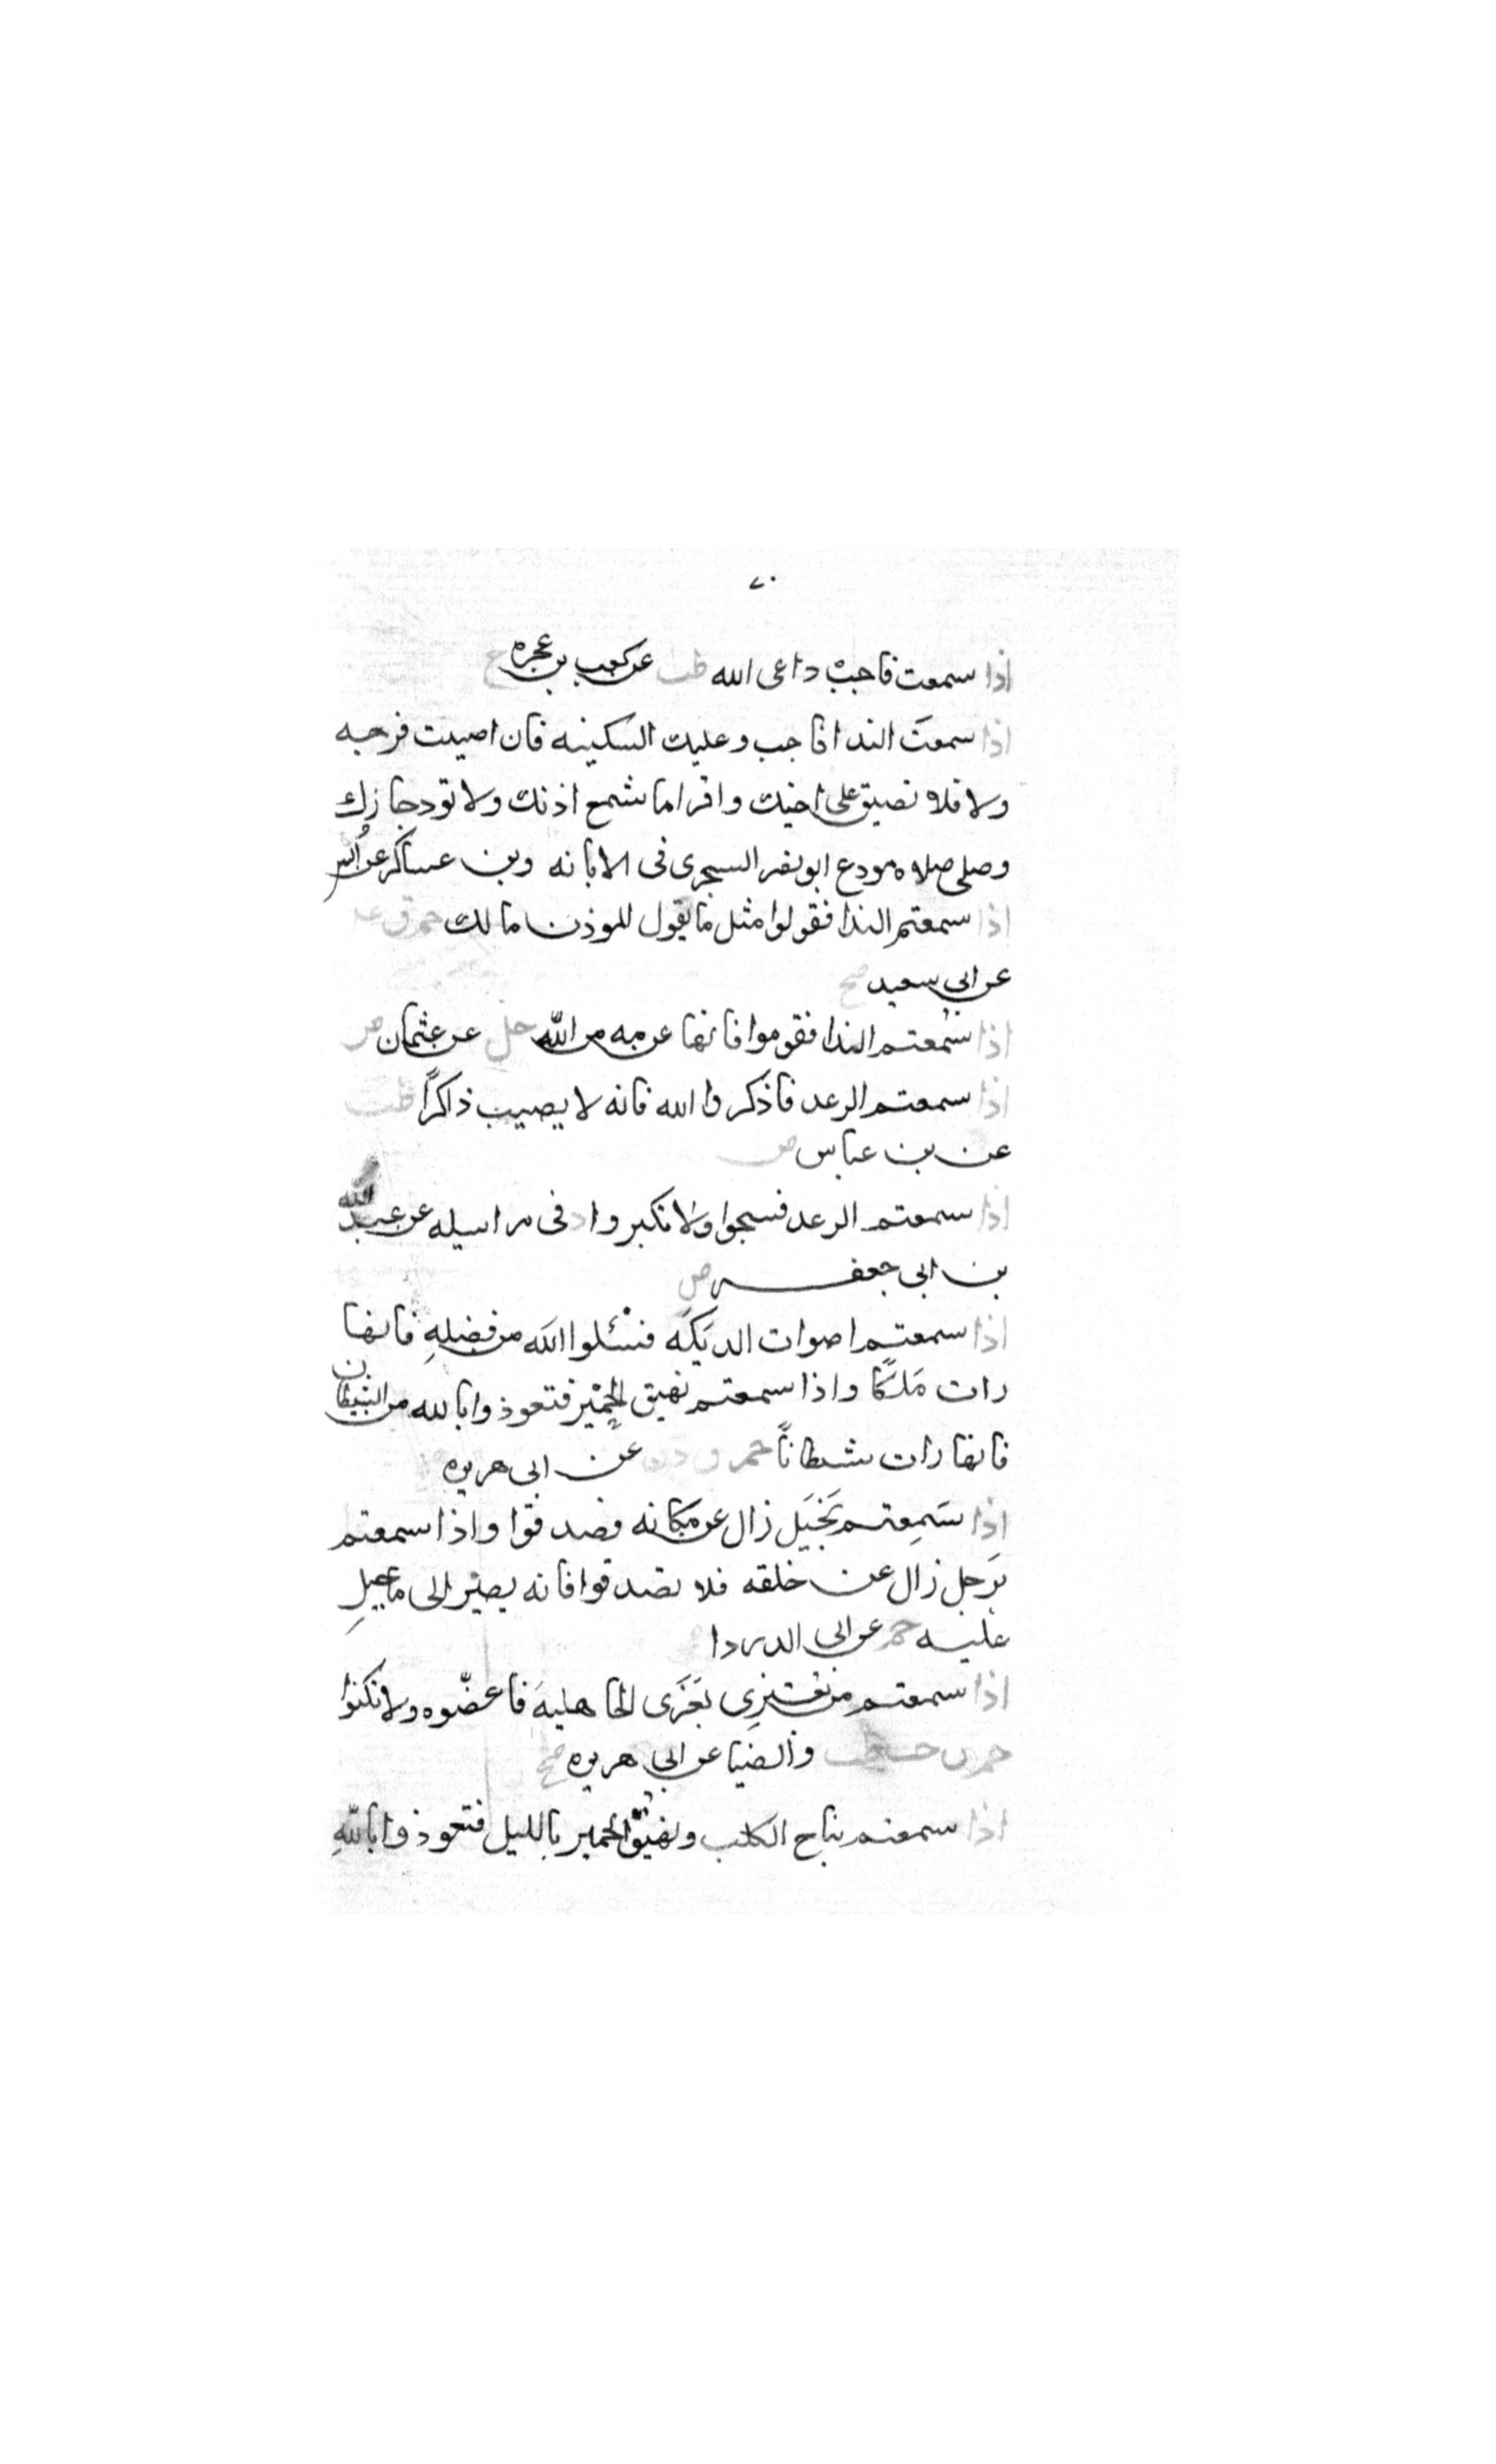 ٧٠
اذا سمعت فاجب داعى الله طب عن كعب بن عجره ح
اذا سمعت الندا فاجب وعليك السكينه فان اصبت فرجه
ولا فلا تضيق على اخيك واقرا ما تسمع اذنك ولا تود جارك
وصلى صلاه مودع ابو نصر السجزى فى الابانه وبن عساكر عن انس
اذا سمعتم الندا فقولوا مثل ما يقول الموذن مالك حم ق عد
عن ابي سعيد صح
اذا سمعتم الندا فقوموا فانها عزمه من الله حل عن عثمان ض
اذا سمعتم الرعد فاذكروا الله فانه لا يصيب ذاكرًا طب
عن بن عباس ض
اذا سمعتم الرعد فسبحوا ولا تكبروا د فى مراسيله عن عبيد الله
بن ابى جعفر ض
اذا سمعتم اصوات الديكه فسئلوا الله من فضله فانها
رات ملكًا واذا سمعتم نهيق الحمير فتعوذوا بالله من الشيطان
فانها رات شيطانًا حم ق د ت عن ابى هريره
اذا سمعتم بجبل زال عن مكانه فصدقوا واذا سمعتم
برجل زال عن خلقه فلا تصدقوا فانه يصير الى ما جبل
عليه حم عن ابى الدردا
اذا سمعتم من يعتزى بعزى الجاهليه فاعضوه ولا تكنوا
حم ن حب طب والضيا عن ابي هريره صح
اذا سمعتم نباح الكلب ونهيق الحمير بالليل فتعوذوا بالله